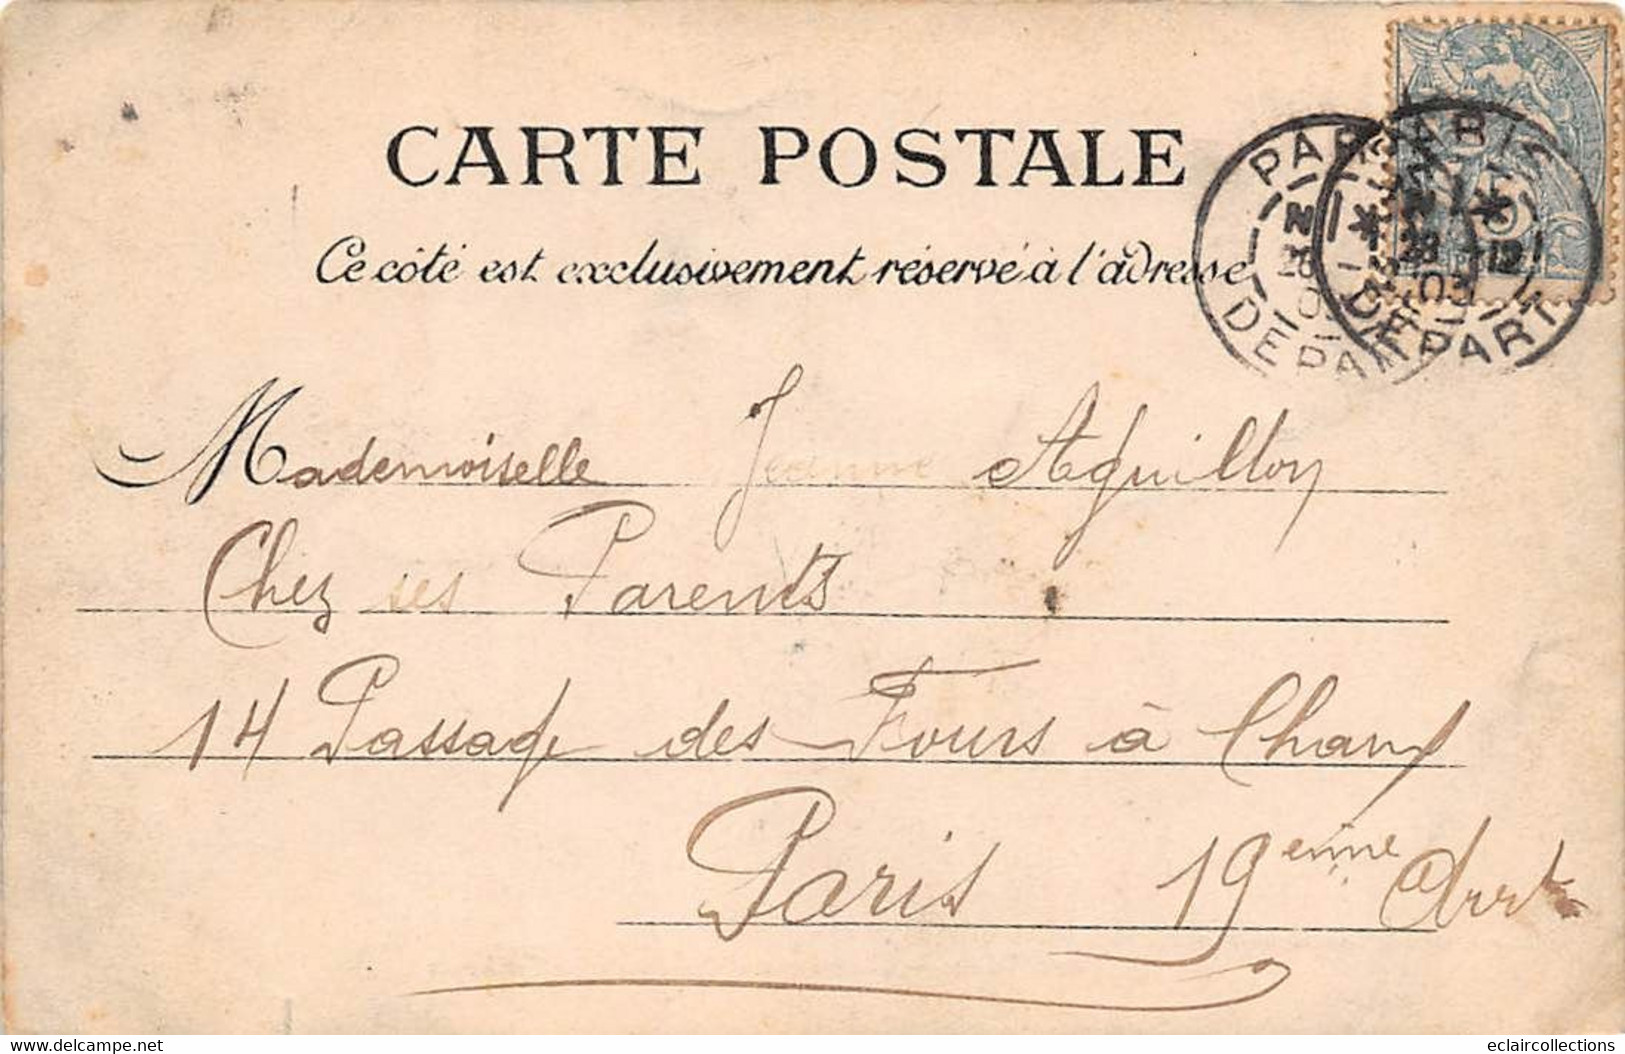 CARTE POSTALE
Ce côté est exclusivement réservé à l'adresse
PARIS
28 12
03
DEPART
Mademoiselle Jeanne Aguillon
Chez ses Parents
14 Passage des Fours à Chaux
Paris 19eme Arrt
delcampe.net
eclaircollections